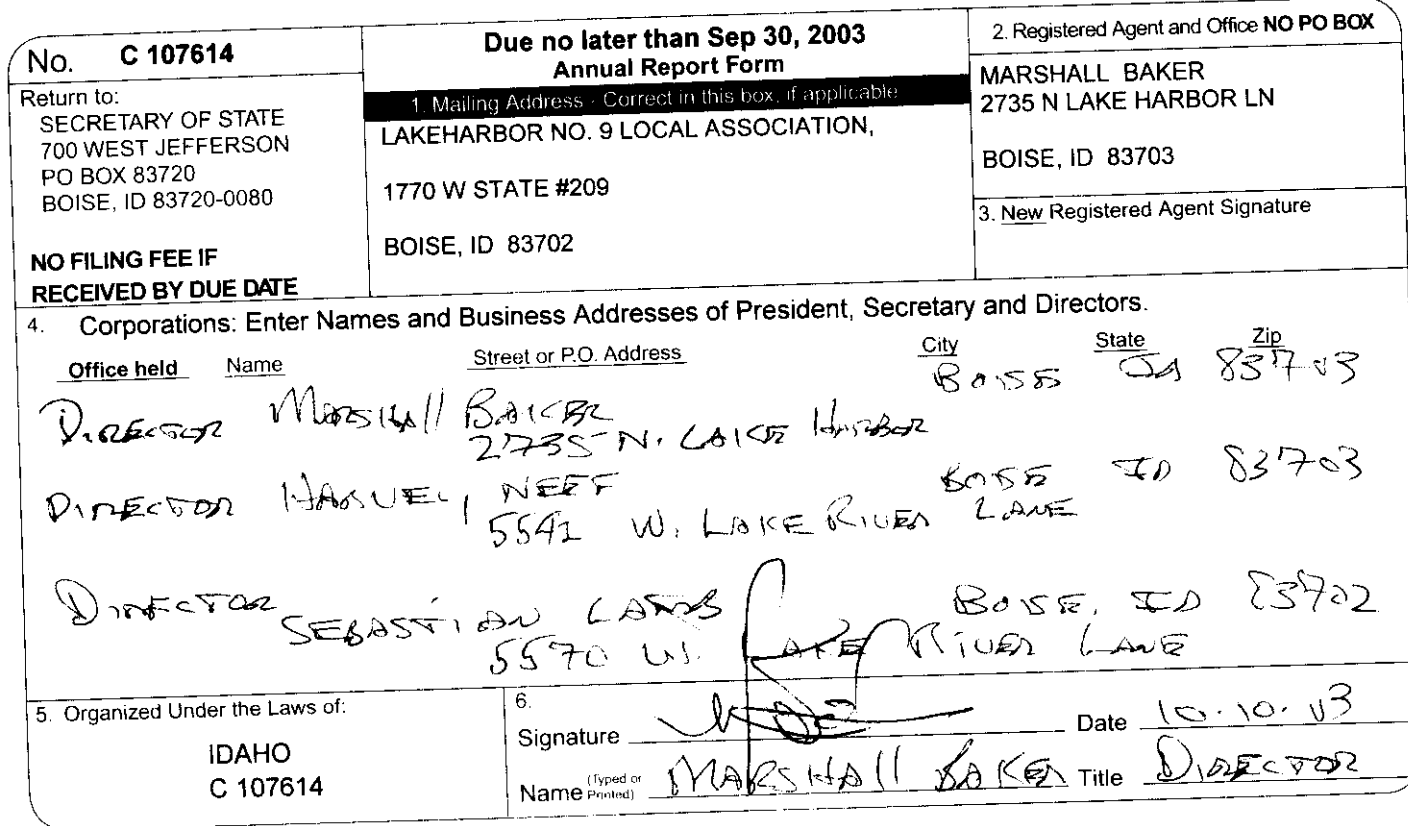 No. C 107614
Return to:
SECRETARY OF STATE
700 WEST JEFFERSON
PO BOX 83720
BOISE, ID 83720-0080
NO FILING FEE IF
RECEIVED BY DUE DATE
Due no later than Sep 30, 2003
Annual Report Form
1. Mailing Address - Correct in this box, if applicable
LAKEHARBOR NO. 9 LOCAL ASSOCIATION,
1770 W STATE #209
BOISE, ID 83702
2. Registered Agent and Office NO PO BOX
MARSHALL BAKER
2735 N LAKE HARBOR LN
BOISE, ID 83703
3. New Registered Agent Signature
4. Corporations: Enter Names and Business Addresses of President, Secretary and Directors.
Office held Name Street or P.O. Address City State Zip
DIRECTOR MARSHALL BAKER BOISE ID 83703
2735 N. LAKE HARBOR
DIRECTOR NEEF BOISE ID 83703
5541 W. LAKE RIVER LANE
DIRECTOR SEBASTIAN BOISE, ID 83702
5570 W. LAKE RIVER LANE
5. Organized Under the Laws of:
IDAHO
C 107614
6.
Signature Date 10.10.03
Name (Typed or Printed) MARSHALL BAKER Title DIRECTOR